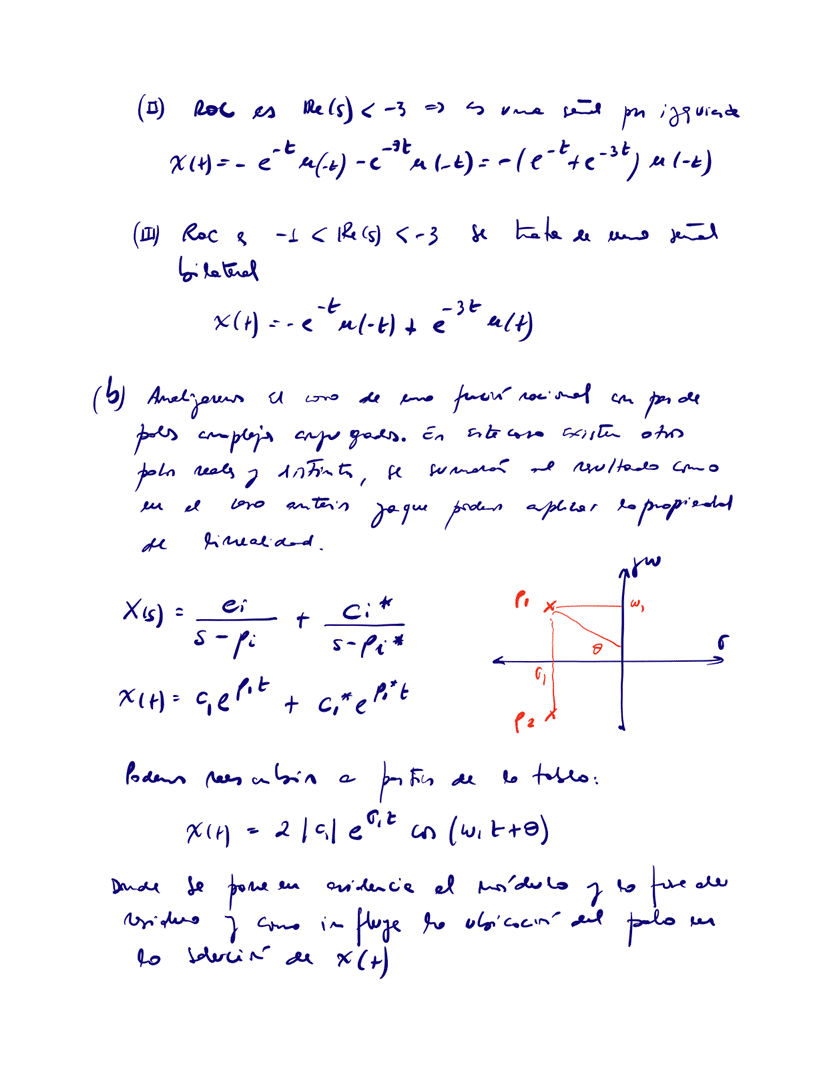 (II) ROC es Re(s) < -3 => es una señal por izquierda
x(t) = - e^{-t} u(-t) - e^{-3t} u(-t) = -(e^{-t} + e^{-3t}) u(-t)
(III) ROC es -1 < Re(s) < -3 se trata de una señal
bilateral
x(t) = - e^{-t} u(-t) + e^{-3t} u(t)
(b) Analizaremos el caso de una función racional con par de
polos complejos conjugados. En este caso existen otros
polos reales y distintos, se sumarán al resultado como
en el caso anterior ya que podemos aplicar la propiedad
de linealidad.
X(s) = ci / (s - pi) + ci* / (s - pi*)
x(t) = c1 e^{p1 t} + c1* e^{p1* t}
jω
p1
ω1
θ
σ
σ1
p2
Podemos reescribir a partir de la tabla:
x(t) = 2 |c1| e^{σ1 t} cos (ω1 t + θ)
Donde se pone en evidencia el módulo y la fase del
residuo y como influye la ubicación del polo en
la solución de x(t)